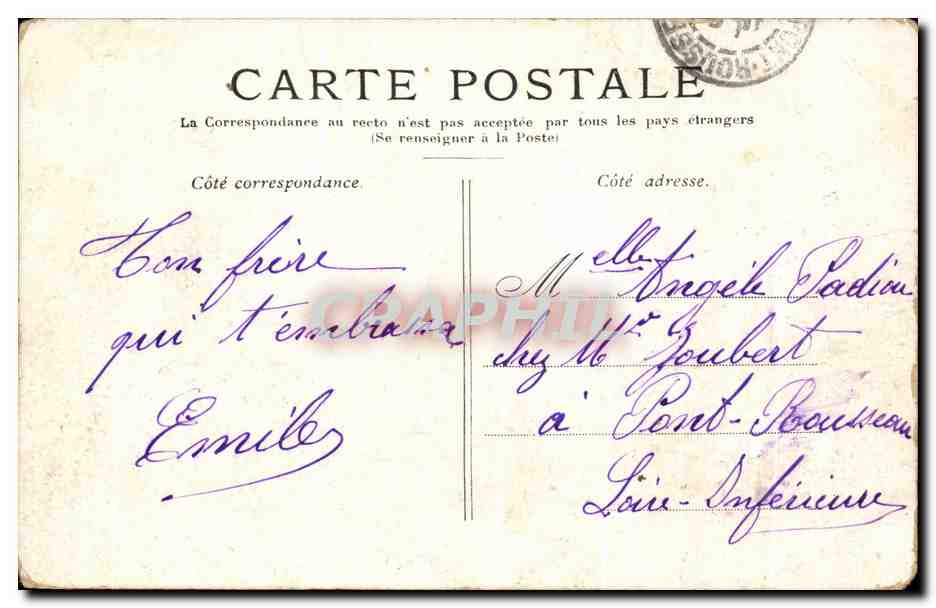 PONT-ROUSSE
CARTE POSTALE
La Correspondance au recto n'est pas acceptée par tous les pays étrangers
(Se renseigner à la Poste)
Côté correspondance.
Côté adresse.
Ton frère
qui t'embrasse
Emile
Melle Angèle Padiou
chez Mr Joubert
à Pont-Rousseau
Loire-Inférieure
CPAPHIL